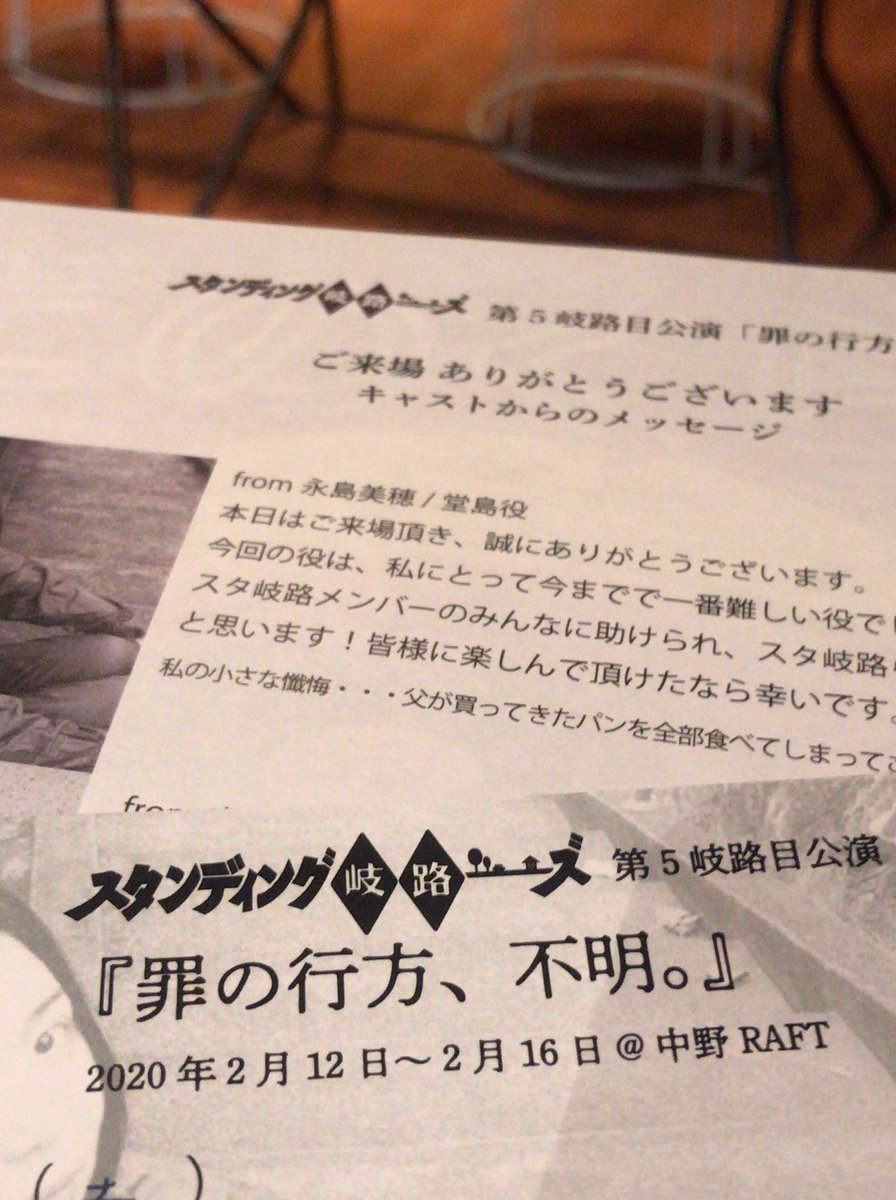 スタンディング岐路ーズ 第5岐路目公演「罪の行方
ご来場 ありがとうございます
キャストからのメッセージ
from 永島美穂 / 堂島役
本日はご来場頂き、誠にありがとうございます。
今回の役は、私にとって今までで一番難しい役で
スタ岐路メンバーのみんなに助けられ、スタ岐路
と思います！皆様に楽しんで頂けたなら幸いです。
私の小さな懺悔・・・父が買ってきたパンを全部食べてしまって
from
スタンディング岐路ーズ 第5岐路目公演
『罪の行方、不明。』
2020年2月12日〜2月16日@中野RAFT